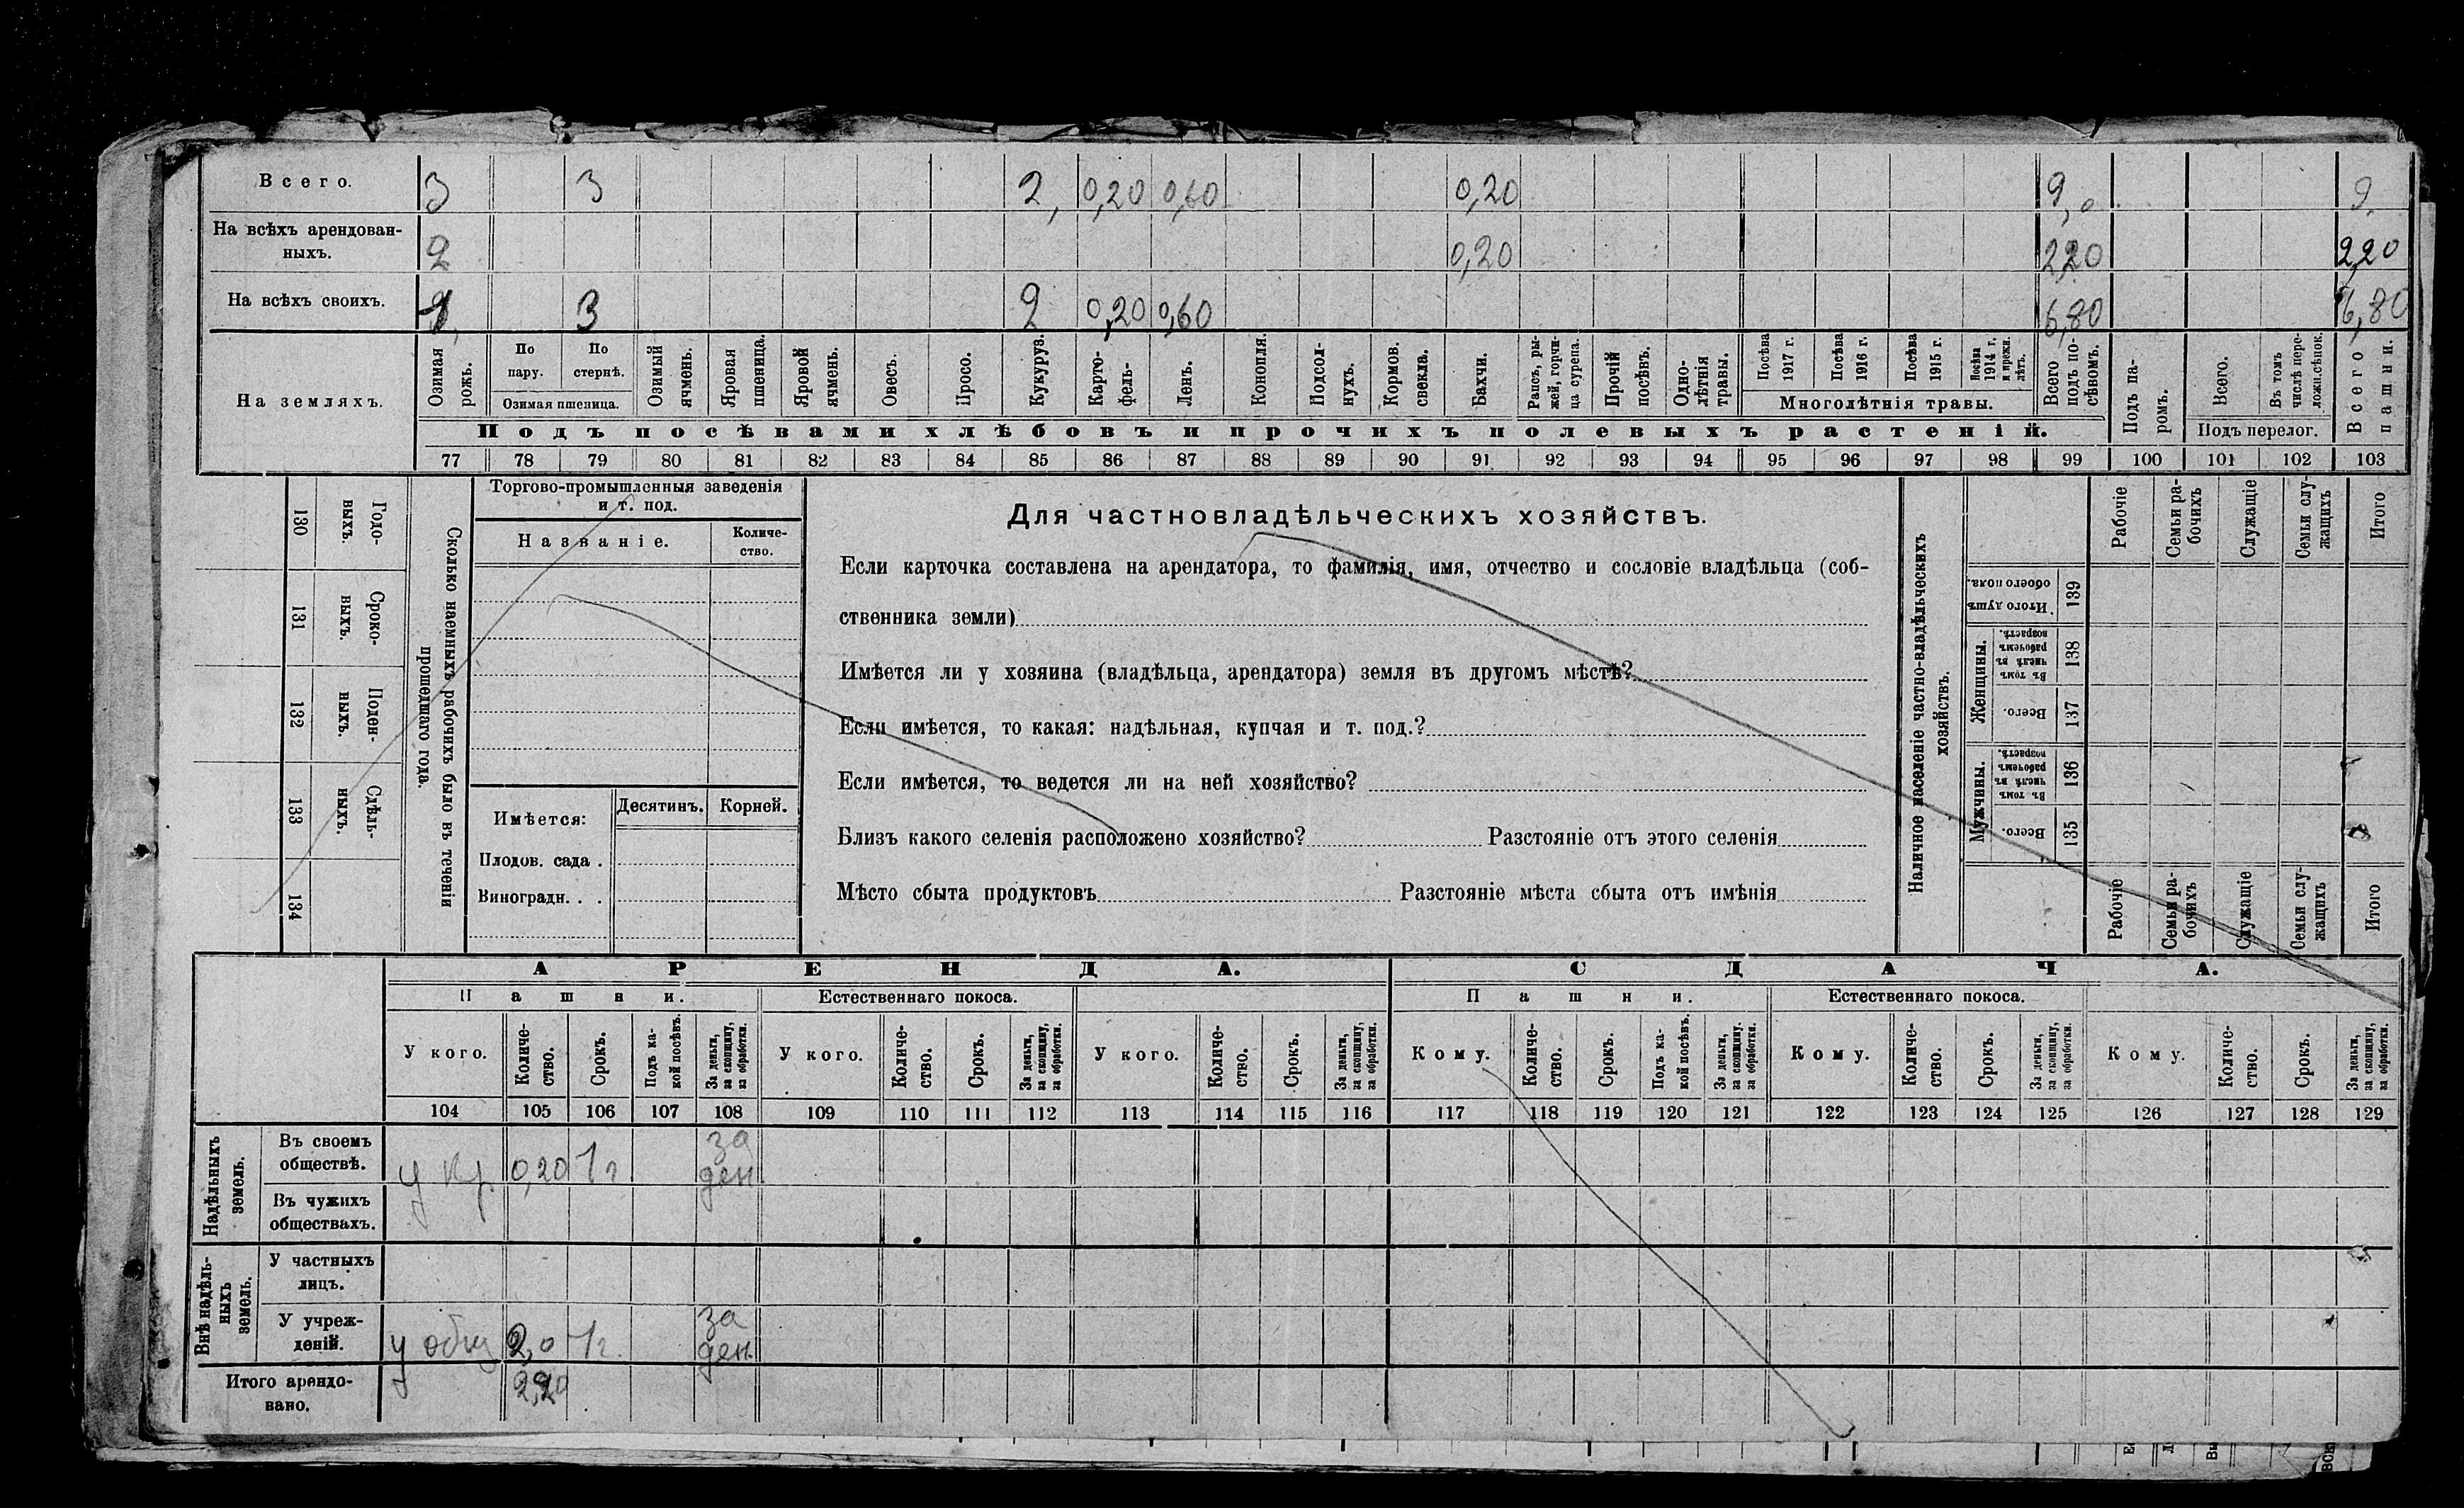 Всего. 3 3 2, 0,20 0,60 0,20 9,0 9,
На всѣхъ арендован-
ныхъ. 2 0,20 2,20 2,20
На всѣхъ своихъ. 1 3 2 0,20 0,60 6,80 6,80
На земляхъ.
Озимая рожь.
По пару.
По стернѣ.
Озимая пшеница.
Озимый ячмень.
Яровая пшеница.
Яровой ячмень.
Овесъ.
Просо.
Кукуруз.
Карто-
фель.
Ленъ.
Конопля.
Подсол-
нухъ.
Кормов. свекла.
Бахчи.
Рапсъ, ры-
жей, горчи-
ца сурепа.
Прочій посѣвъ.
Одно-
лѣтнія травы.
Посѣва 1917 г.
Посѣва 1916 г.
Посѣва 1915 г.
Посѣва 1914 г. и прежн. лѣтъ.
Многолѣтнія травы.
Всего подъ по-
сѣвомъ.
Подъ па-
ромъ.
Всего.
Въ томъ числѣ пере-
ложн.сѣнок.
Подъ перелог.
Всего пашни.
Подъ посѣвами хлѣбовъ и прочихъ полевыхъ растеній.
77 78 79 80 81 82 83 84 85 86 87 88 89 90 91 92 93 94 95 96 97 98 99 100 101 102 103
130 Годо-
выхъ.
131 Сроко-
ныхъ.
132 Поден-
ныхъ.
133 Сдѣль-
ныхъ.
134
Сколько наемныхъ рабочихъ было въ теченіи
прошедшаго года.
Торгово-промышленныя заведенія
и т. под.
Названіе.
Количе-
ство.
Имѣется: Десятинъ. Корней.
Плодов. сада .
Виноградн. . .
Для частновладѣльческихъ хозяйствъ.
Если карточка составлена на арендатора, то фамилія, имя, отчество и сословіе владѣльца (соб-
ственника земли)
Имѣется ли у хозяина (владѣльца, арендатора) земля въ другомъ мѣстѣ?
Если имѣется, то какая: надѣльная, купчая и т. под.?
Если имѣется, то ведется ли на ней хозяйство?
Близъ какого селенія расположено хозяйство? Разстояніе отъ этого селенія
Мѣсто сбыта продуктовъ Разстояніе мѣста сбыта отъ имѣнія
Наличное населеніе частно-владѣльческихъ
хозяйствъ.
Рабочіе
Семьи ра-
бочихъ
Служащіе
Семьи слу-
жащихъ
Итого
Итого душъ обоего пола. 139
Женщины.
Въ томъ числѣ въ рабочемъ возрастѣ. 138
Всего. 137
Мужчины.
Въ томъ числѣ въ рабочемъ возрастѣ. 136
Всего. 135
Рабочіе
Семьи ра-
бочихъ
Служащіе
Семьи слу-
жащихъ
Итого
АРЕНДА. СДАЧА.
Пашни. Естественнаго покоса. Пашни. Естественнаго покоса.
У кого.
Количе-
ство.
Срокъ.
Подъ ка-
кой посѣвъ.
За деньги, за скопщину, за обработки.
У кого.
Количе-
ство.
Срокъ.
За деньги, за скопщину, за обработки.
У кого.
Количе-
ство.
Срокъ.
За деньги, за скопщину, за обработки.
Кому.
Количе-
ство.
Срокъ.
Подъ ка-
кой посѣвъ.
За деньги, за скопщину, за обработки.
Кому.
Количе-
ство.
Срокъ.
За деньги, за скопщину, за обработки.
Кому.
Количе-
ство.
Срокъ.
За деньги, за скопщину, за обработки.
104 105 106 107 108 109 110 111 112 113 114 115 116 117 118 119 120 121 122 123 124 125 126 127 128 129
Надѣльныхъ земель.
Въ своемъ
обществѣ. у кр. 0,20 1 г за ден
Въ чужихъ
обществахъ.
Внѣ надѣль-
ныхъ земель.
У частныхъ
лицъ.
У учреж-
деній. у общ 2,0 1 г. за ден.
Итого арендо-
вано. 2,20